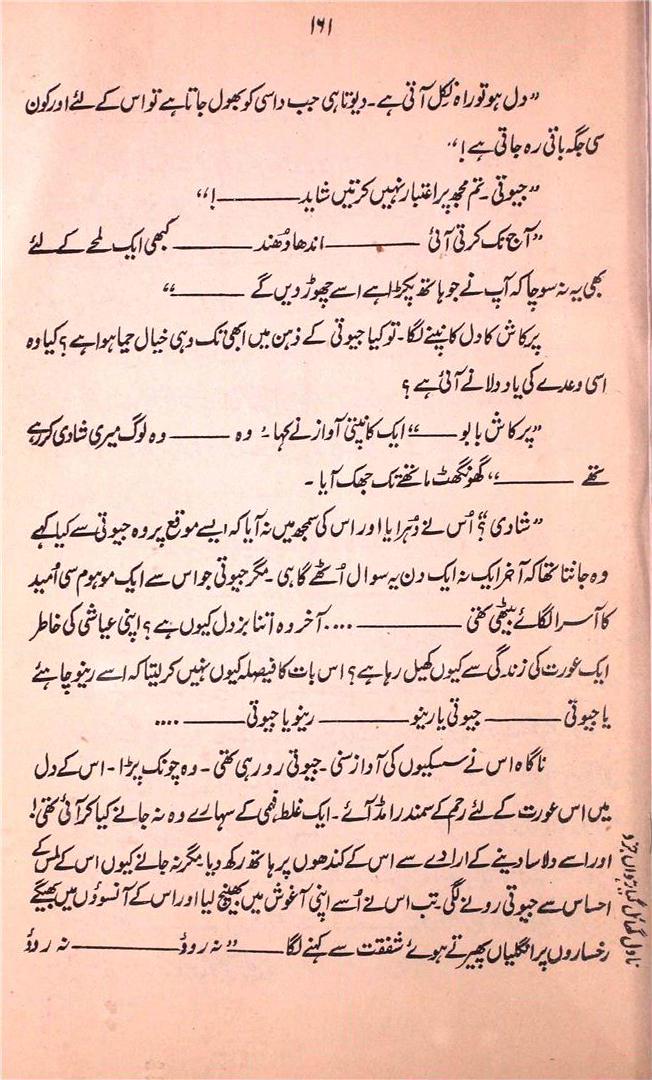 ۱۶۱
”دل ہو تو راہ نکل آتی ہے۔ دیوتا ہی جب داسی کو بھول جاتا ہے تو اس کے لئے اور کون
سی جگہ باقی رہ جاتی ہے!“
”جیوتی۔ تم مجھ پر اعتبار نہیں کرتیں شاید ———!“
”آج تک کرتی آئی ——— اندھا دُھند ——— کبھی ایک لمحے کے لئے
بھی یہ نہ سوچا کہ آپ نے جو ہاتھ پکڑا ہے اسے چھوڑ دیں گے ———“
پرکاش کا دل کانپنے لگا۔ تو کیا جیوتی کے ذہن میں ابھی تک وہی خیال جما ہوا ہے؟ کیا وہ
اسی وعدے کی یاد دلانے آئی ہے؟
”پرکاش بابو ———“ ایک کانپتی آواز نے کہا۔ وہ ——— وہ لوگ میری شادی کر رہے
تھے ———“ گھونگھٹ ماتھے تک جھک آیا۔
”شادی؟“ اُس نے دُہرایا اور اس کی سمجھ میں نہ آیا کہ ایسے موقع پر وہ جیوتی سے کیا کہے
وہ جانتا تھا کہ آخر ایک نہ ایک دن یہ سوال اُٹھے گا ہی۔ مگر جیوتی جو اس سے ایک موہوم سی اُمید
کا آسرا لگائے بیٹھی تھی ——— .... آخر وہ اتنا بزدل کیوں ہے؟ اپنی عیاشی کی خاطر
ایک عورت کی زندگی سے کیوں کھیل رہا ہے؟ اس بات کا فیصلہ کیوں نہیں کر لیتا کہ اسے رینو چاہئے
یا جیوتی ——— جیوتی یا رینو ——— رینو یا جیوتی ——— ....
ناگاہ اس نے سسکیوں کی آواز سنی۔ جیوتی رو رہی تھی۔ وہ چونک پڑا۔ اس کے دل
میں اس عورت کے لئے رحم کے سمندر امڈ آئے۔ ایک غلط فہمی کے سہارے وہ نہ جانے کیا کر آئی تھی!
اور اسے دلاسا دینے کے ارادے سے اس کے کندھوں پر ہاتھ رکھ دیا۔ مگر نہ جانے کیوں اس کے لمس کے
احساس سے جیوتی رونے لگی۔ تب اس نے اُسے اپنی آغوش میں بھینچ لیا اور اس کے آنسوؤں میں بھیگے
رخساروں پر انگلیاں پھیرتے ہوئے شفقت سے کہنے لگا ——— ”نہ روؤ ——— نہ روؤ
ناول